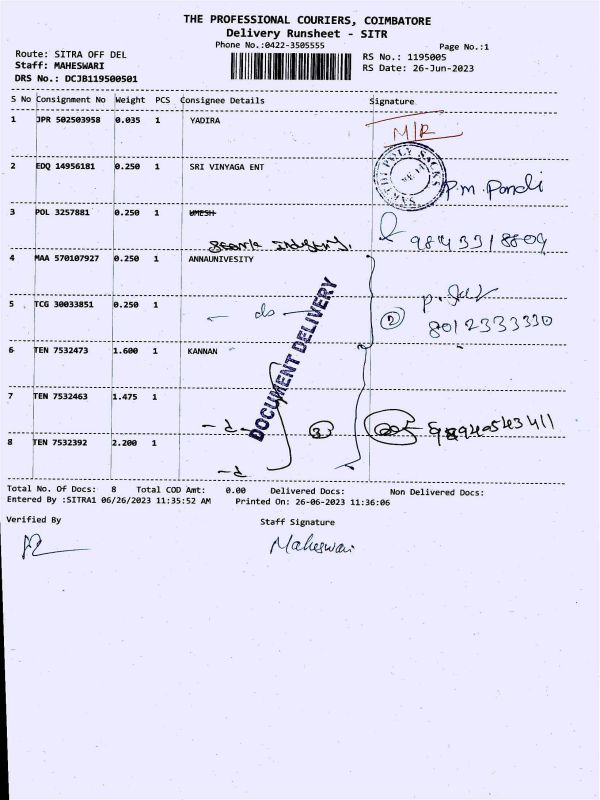 THE PROFESSIONAL COURIERS, COIMBATORE
Delivery Runsheet - SITR
Phone No.:0422-3505555
Page No.:1
Route: SITRA OFF DEL
Staff: MAHESWARI
DRS No.: DCJB119500501
RS No.: 1195005
RS Date: 26-Jun-2023
S No Consignment No Weight PCS Consignee Details Signature
1 JPR 502503958 0.035 1 YADIRA
M/R
2 EDQ 14956181 0.250 1 SRI VINYAGA ENT
P.M. Pandi
3 POL 3257881 0.250 1 UMESH
9843318809
4 MAA 570107927 0.250 1 ANNAUNIVESITY
5 TCG 30033851 0.250 1 - do -
2
8012333330
DOCUMENT DELIVERY
6 TEN 7532473 1.600 1 KANNAN
7 TEN 7532463 1.475 1
- d -
3
8 TEN 7532392 2.200 1
- d
Total No. Of Docs: 8 Total COD Amt: 0.00 Delivered Docs: Non Delivered Docs:
Entered By :SITRA1 06/26/2023 11:35:52 AM Printed On: 26-06-2023 11:36:06
Verified By
Staff Signature
Maheswari